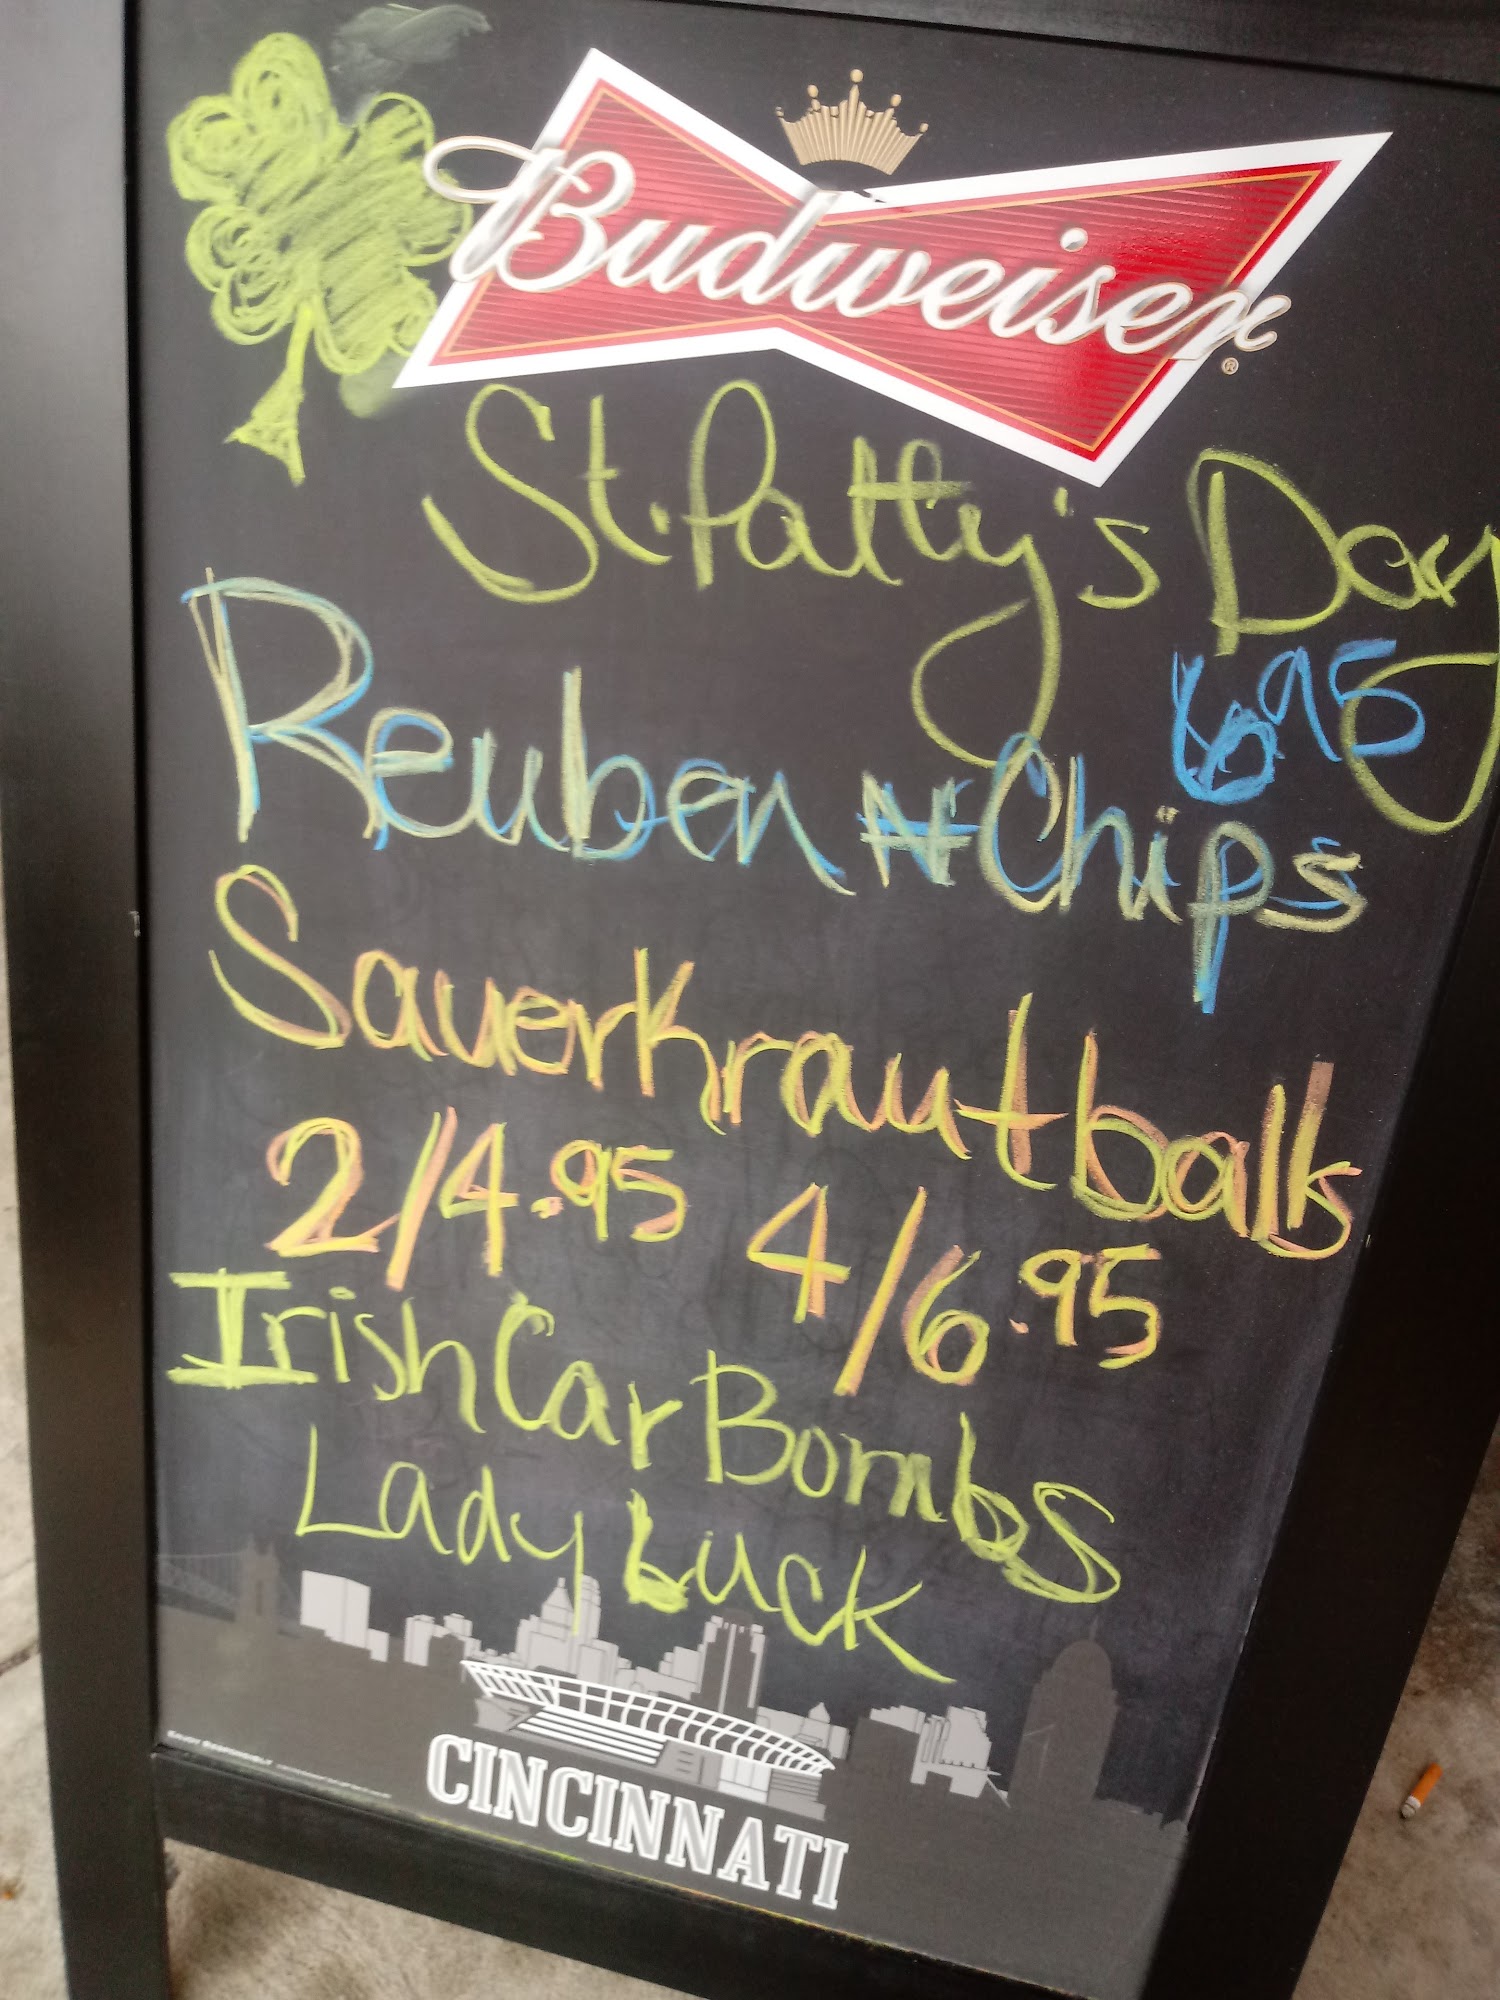 Budweiser®
St. Patty's Day
6.95
Reuben N Chips
Sauerkrautballs
2/4.95 4/6.95
Irish Car Bombs
Lady Luck
CINCINNATI